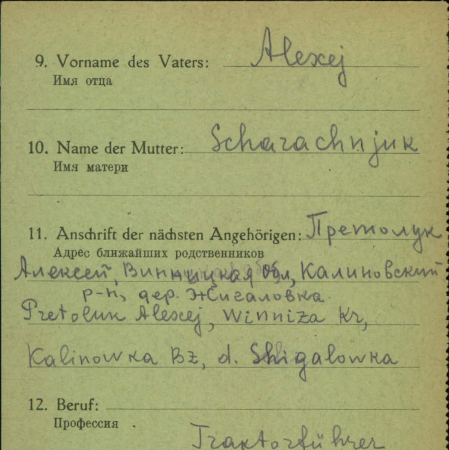 9. Vorname des Vaters: Alexej
Имя отца
10. Name der Mutter: Scharachnjuk
Имя матери
11. Anschrift der nächsten Angehörigen: Претолук
Адрес ближайших родственников
Алексей, Винницкая Обл, Калиновский
р-н, дер. Жигаловка
Pretoluk Alexej, Winniza Kr,
Kalinowka Bz, d. Shigalowka
12. Beruf:
Профессия
Traktorführer